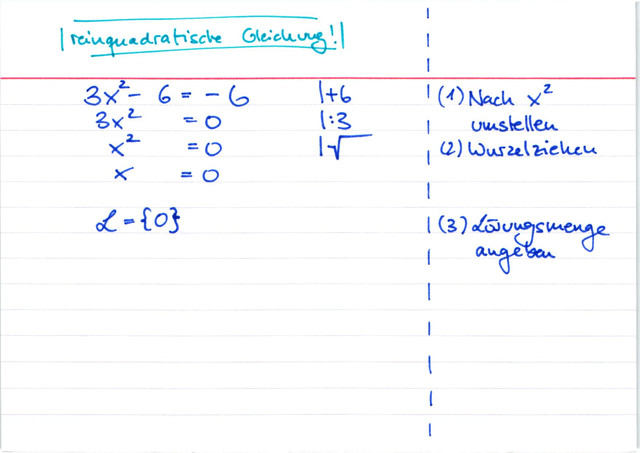 |reinquadratische Gleichung!|
3x² - 6 = - 6 |+6
3x² = 0 |:3
x² = 0 |√
x = 0
L = {0}
(1) Nach x²
umstellen
(2) Wurzelziehen
(3) Lösungsmenge
angeben